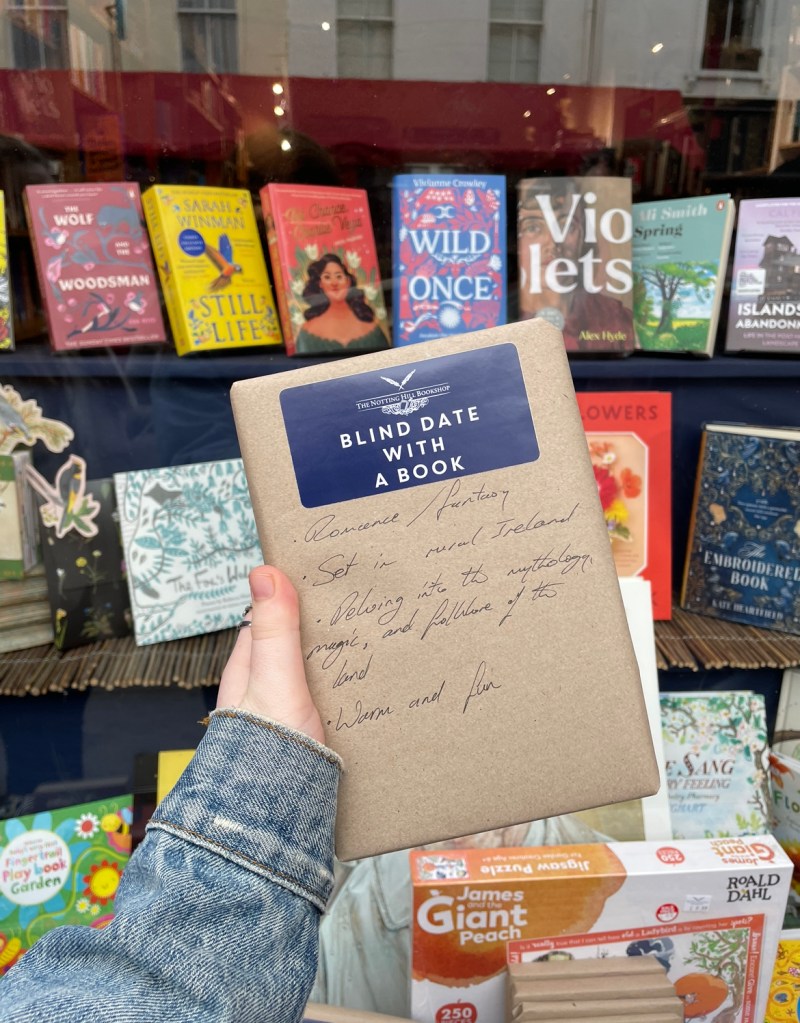 THE WOLF
AND THE
WOODSMAN
SARAH
WINMAN
STILL
LIFE
Vivianne Crowley
WILD
ONCE
Vio
lets
Alex Hyde
Ali Smith
Spring
ISLANDS
ABANDON
THE NOTTING HILL BOOKSHOP
BLIND DATE
WITH
A BOOK
· Romance / fantasy
· Set in rural Ireland
· Delving into the mythology,
magic, and folklore of the
land
· Warm and fun
LOWERS
The Fox's
The
EMBROIDERED
BOOK
KATE HEARTFIELD
E SANG
Y FEELING
Poetry Pharmacy
Fingertrail
Play book
Garden
Jigsaw Puzzle
James
and the
Giant
Peach
250
PIECES
James
Giant
Peach
250
ROALD
DAHL